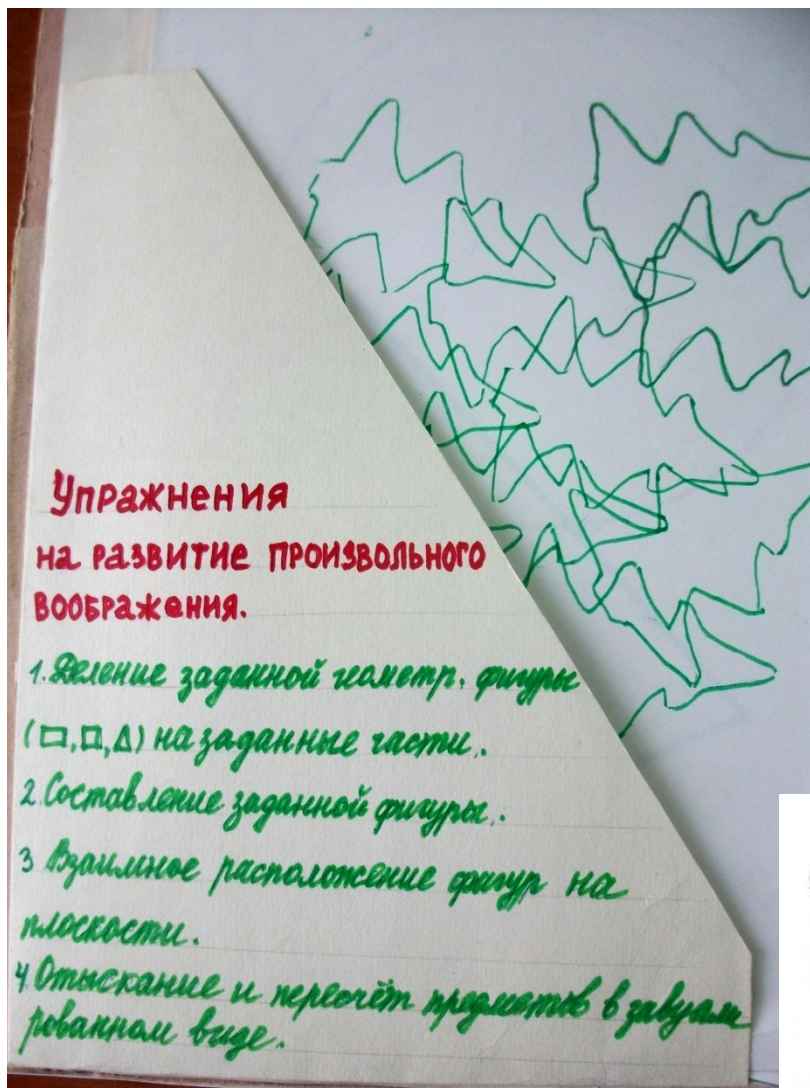 Упражнения
на развитие произвольного
воображения.
1. Деление заданной геометр. фигуры
(▭,□,△) на заданные части.
2. Составление заданной фигуры.
3 Взаимное расположение фигур на
плоскости.
4. Отыскание и пересчёт предметов в завуали
рованном виде.